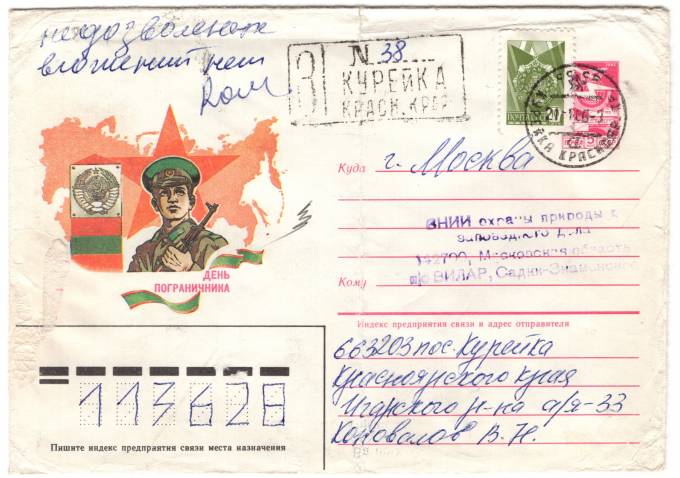 недозволенных
вложений нет
З
N 38
КУРЕЙКА
КРАСН. КРАЯ
ПОЧТА СССР
Куда г. Москва
ВНИИ охраны природы и
заповедного дела
142790, Московская область
п/о ВИЛАР, Садки-Знаменское
Кому
ДЕНЬ
ПОГРАНИЧНИКА
Индекс предприятия связи и адрес отправителя
663203 пос. Курейка
Красноярского края
Игарского р-на а/я-33
Коновалов В. Н.
113628
Пишите индекс предприятия связи места назначения